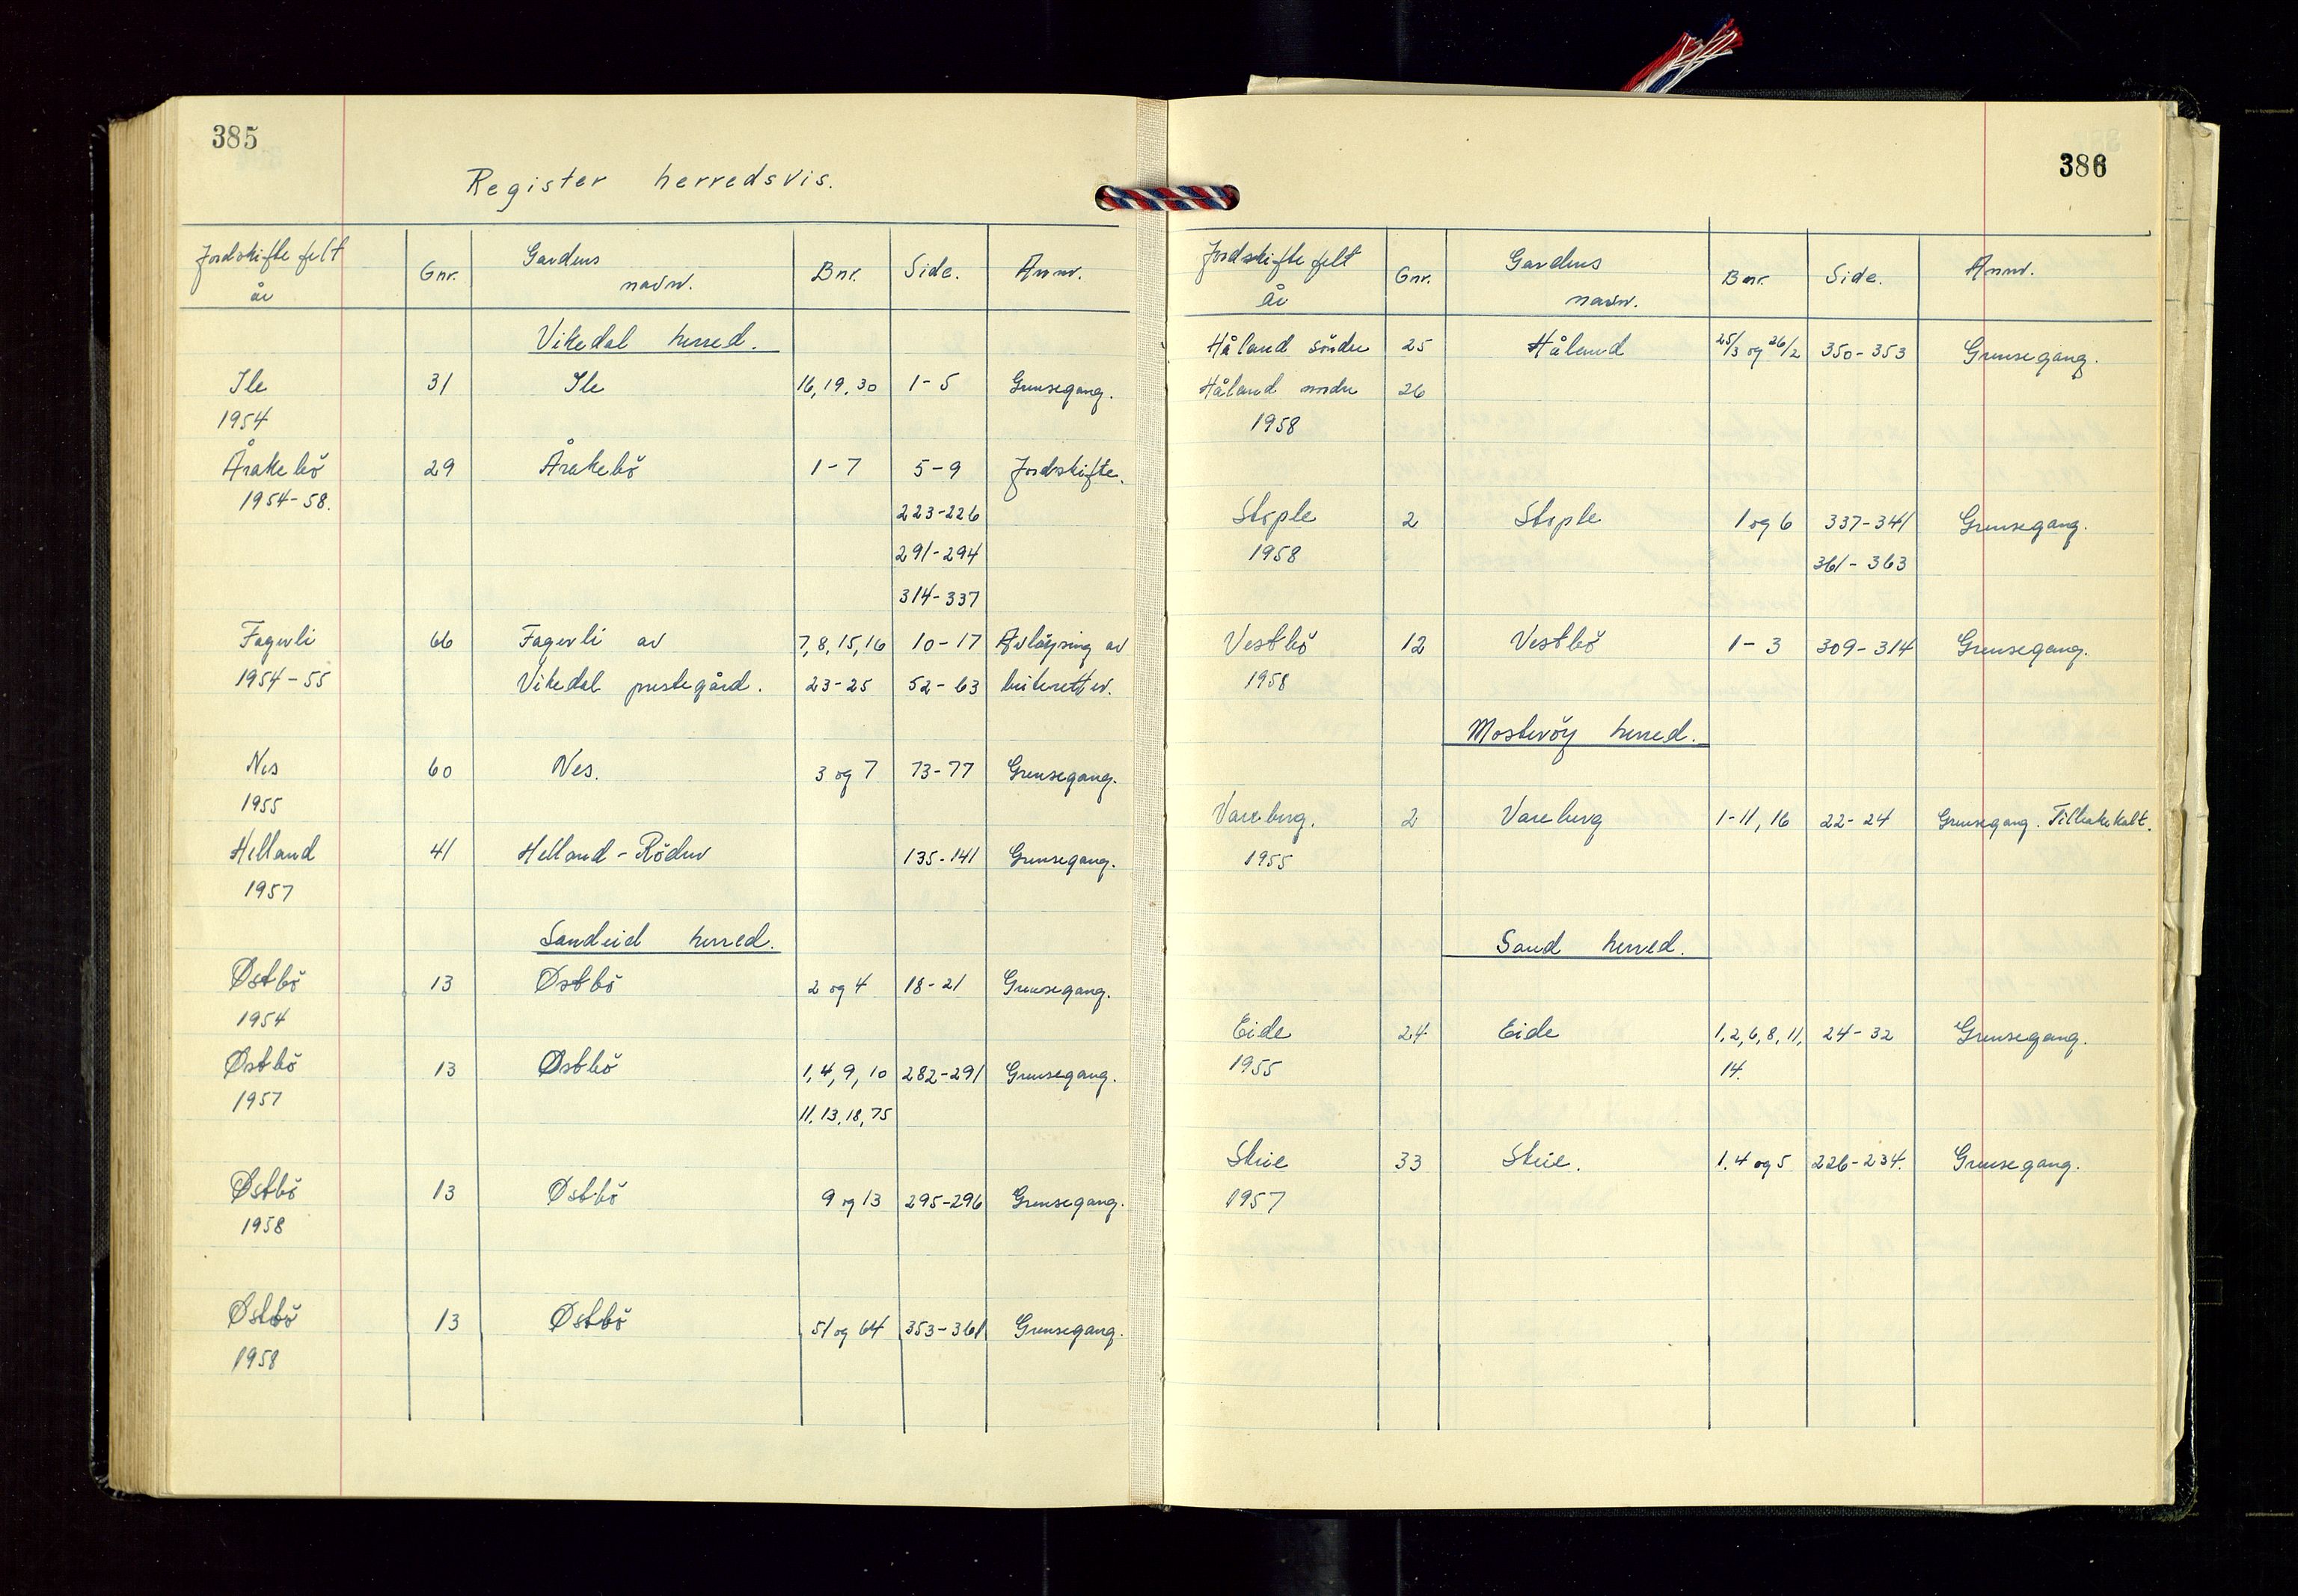 385
Register herredsvis.
Jordskifte felt år Gnr. Gardens navn. Bnr. Side. Anm.
Vikedal herred.
Ile 31 Ile 16, 19, 30 1-5 Grensegang.
1954
Årakebö 29 Årakebö 1-7 5-9 Jordskifte.
1954-58. 223-226
291-294
314-337
Fagerli 66 Fagerli av 7, 8, 15, 16 10-17 Avlöysing av
1954-55 Vikedal prestegård. 23-25 52-63 beiteretter.
Nes 60 Nes. 3 og 7 73-77 Grensegang.
1955
Helland 41 Helland-Röden 135-141 Grensegang.
1957
Sandeid herred.
Østbö 13 Østbö 2 og 4 18-21 Grensegang.
1954
Østbö 13 Østbö 1, 4, 9, 10 282-291 Grensegang.
1957 11, 13, 18, 75
Østbö 13 Østbö 9 og 13 295-296 Grensegang.
1958
Østbö 13 Østbö 51 og 64 353-361 Grensegang.
1958
386
Jordskifte felt år Gnr. Gardens navn. Bnr. Side. Anm.
Håland söndre 25 Håland 25/3 og 26/2 350-353 Grensegang.
Håland nordre 26
1958
Stople 2 Stople 1 og 6 337-341 Grensegang.
1958 361-363
Vestbö 12 Vestbö 1-3 309-314 Grensegang.
1958
Mosteröy herred.
Vareberg. 2 Vareberg 1-11, 16 22-24 Grensegang. Tilbakekalt.
1955
Sand herred.
Eide 24 Eide 1, 2, 6, 8, 11, 24-32 Grensegang.
1955 14.
Skeie 33 Skeie. 1, 4 og 5 226-234. Grensegang.
1957